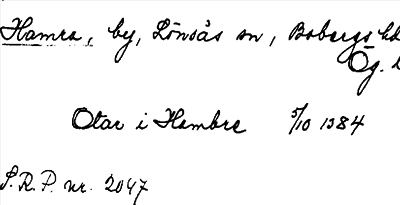 Hamra, by, Lönsås sn, Bobergs hd
Ög. l
Otar i Hambre 5/10 1384
S.R.P. nr. 2047